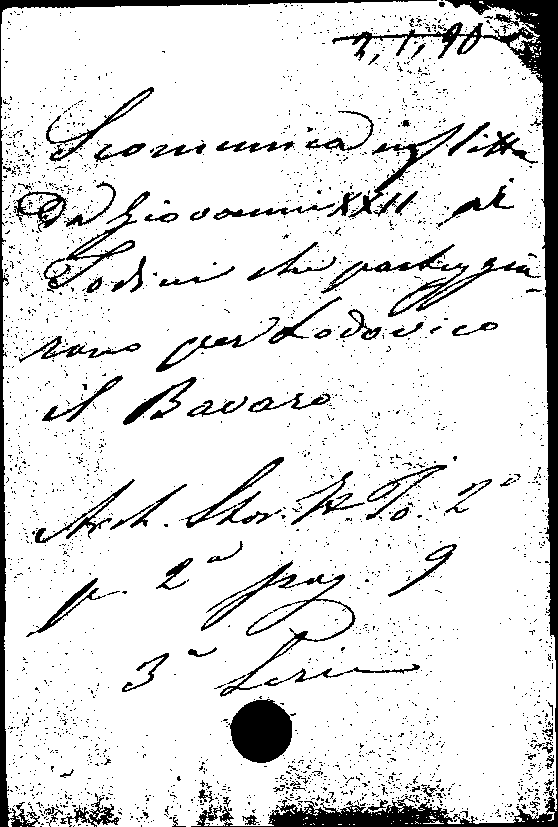 3, 1, 90
Scomunica inflitta
da Giovanni XXII ai
Todini che parteggia-
rono per Lodovico
il Bavaro
Arch. Stor. It. To. 2º
p. 2ª pag. 9
3ª Serie